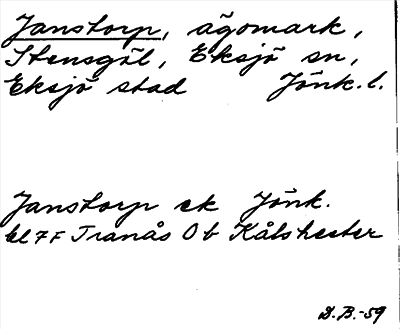 Janstorp, ägomark,
Stensgöl, Eksjö sn,
Eksjö stad Jönk. l.
Janstorp ek Jönk.
bl 7F Tranås Ob Kålshester
D.B.-59